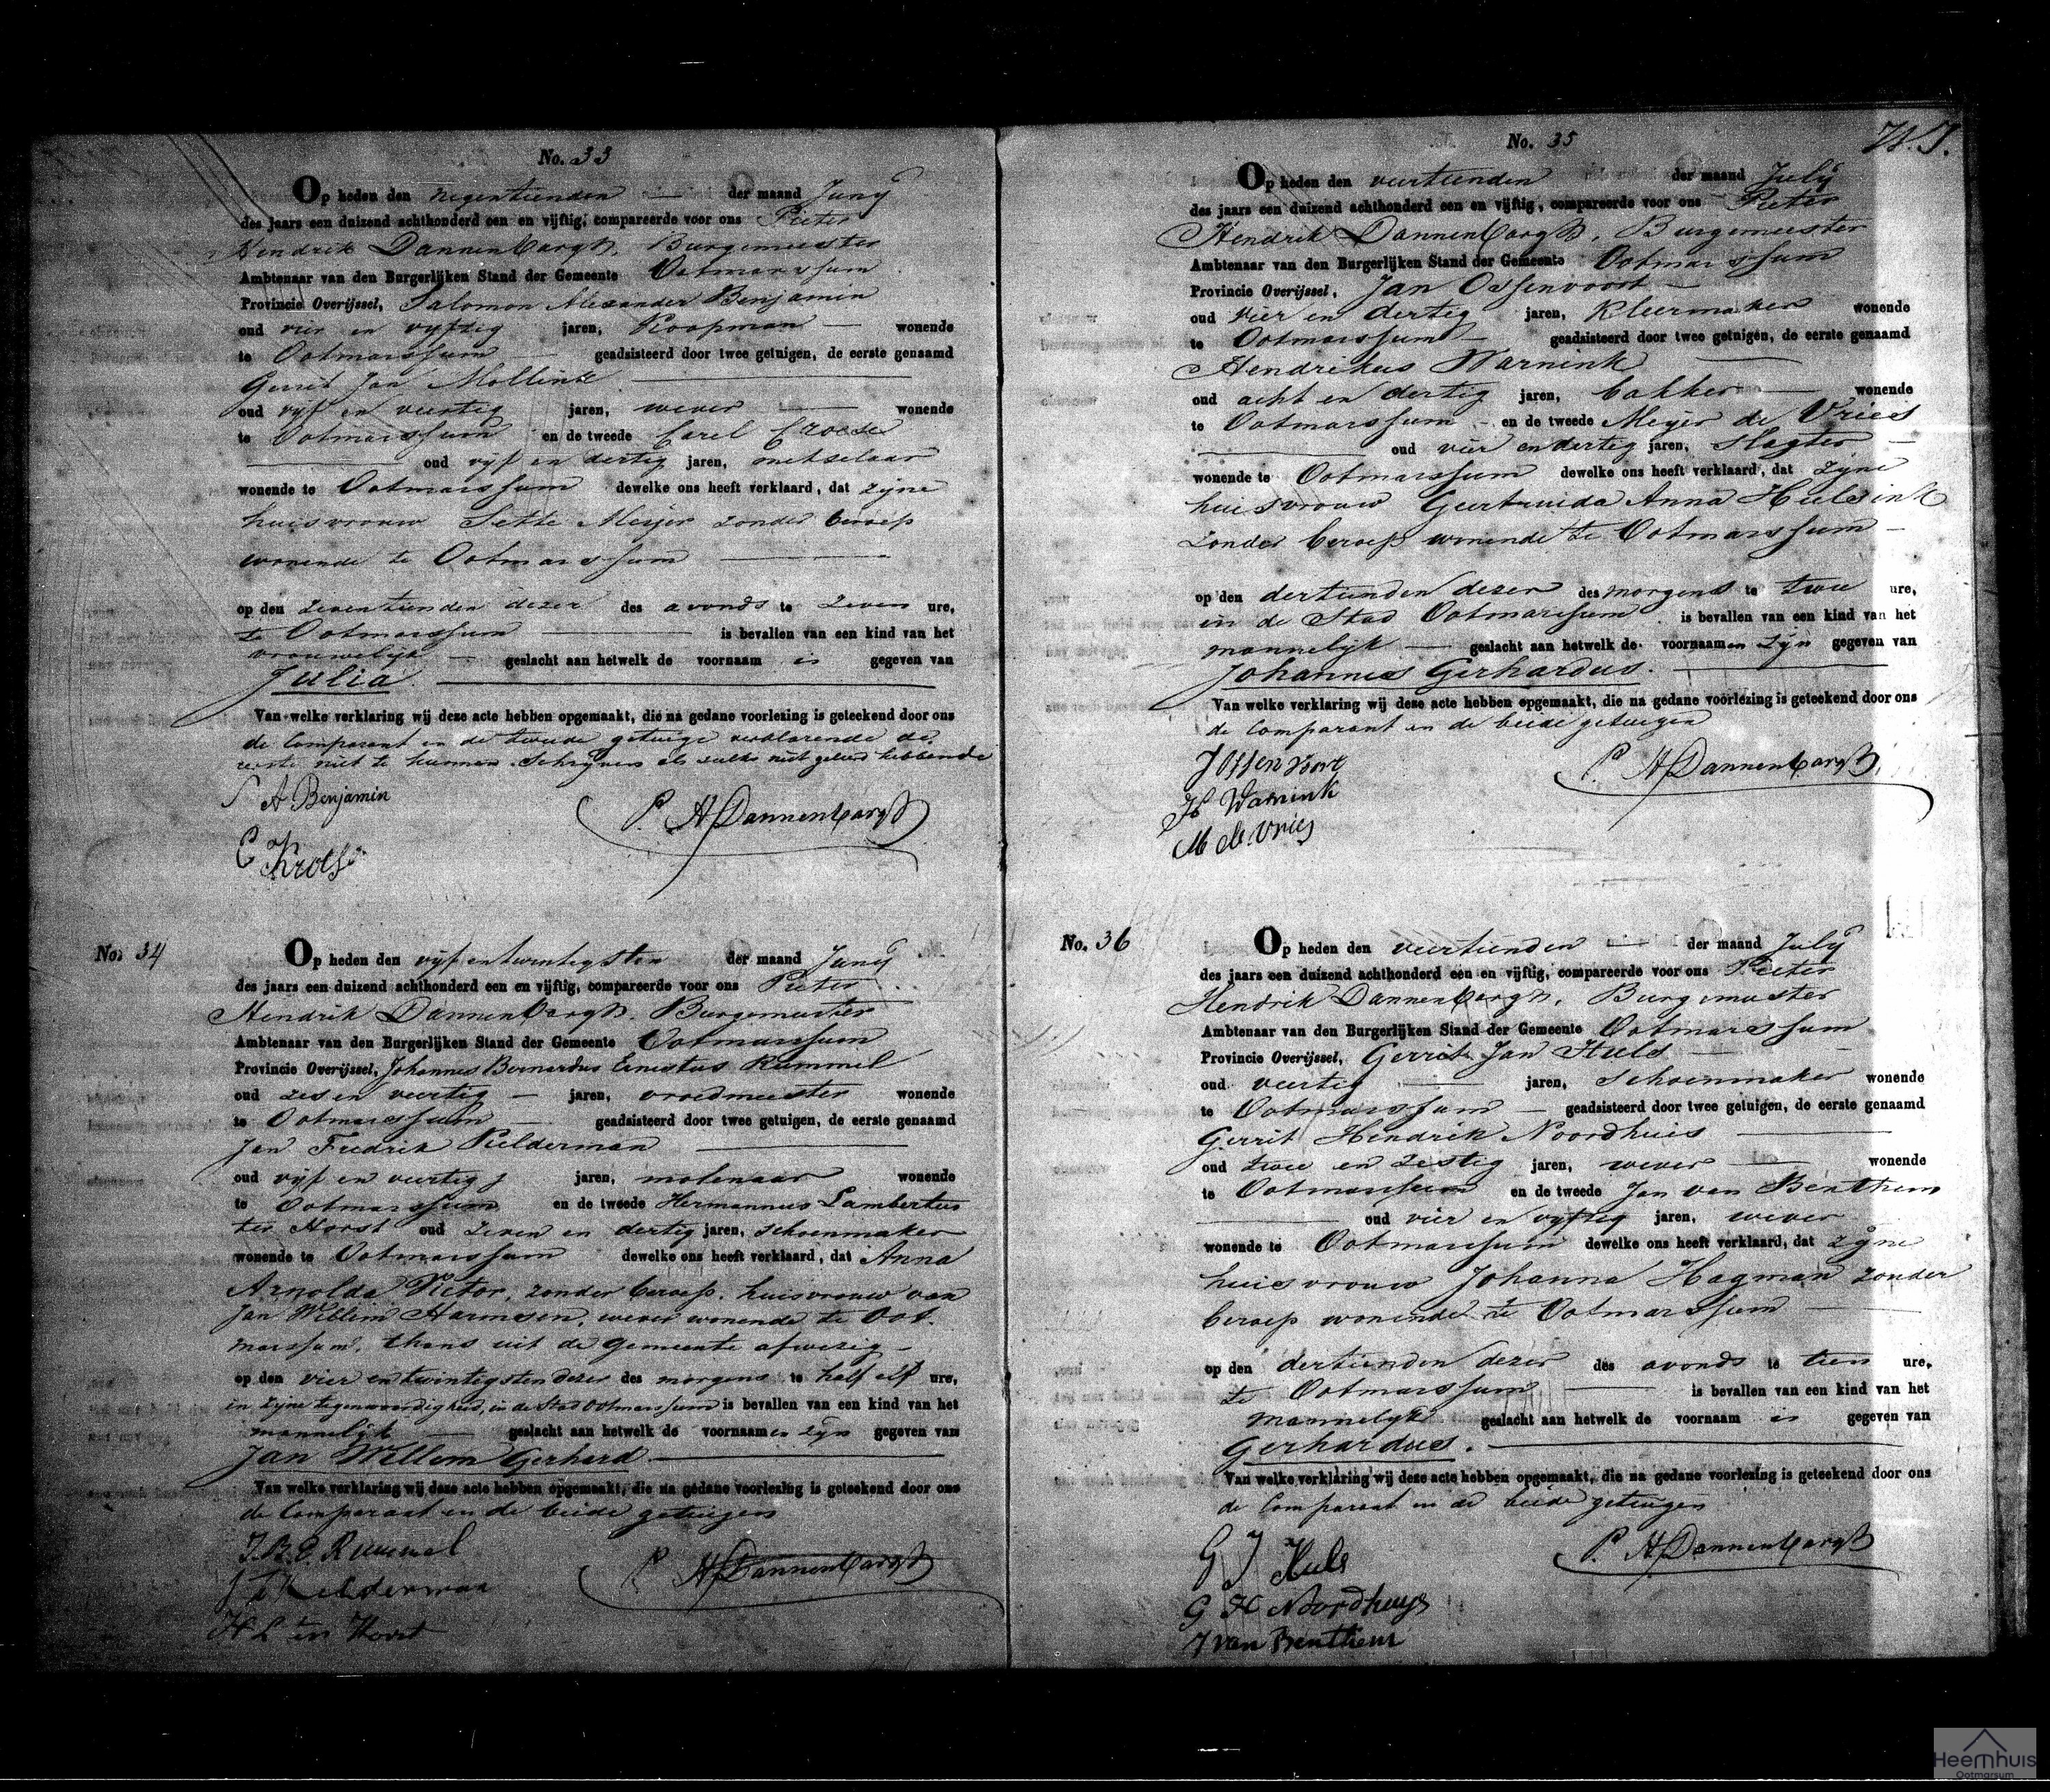 No. 33
Op heden den negentienden der maand Juny
des jaars een duizend achthonderd een en vijftig, compareerde voor ons Pieter
Hendrik Dannenbargh, Burgemeester
Ambtenaar van den Burgerlijken Stand der Gemeente Ootmarssum
Provincie Overijssel, Salomon Alexander Benjamin
oud vier en vyftig jaren, Koopman wonende
te Ootmarssum geadsisteerd door twee getuigen, de eerste genaamd
Gerrit Jan Mollink
oud vyf en veertig jaren, wever wonende
te Ootmarssum en de tweede Carel Croese
oud vyf en dertig jaren, metselaar
wonende te Ootmarssum dewelke ons heeft verklaard, dat zyne
huisvrouw Sette Meijer zonder beroep
wonende te Ootmarssum
op den zeventienden dezer des avonds te zeven ure,
te Ootmarssum is bevallen van een kind van het
vrouwelijk geslacht aan hetwelk de voornaam is gegeven van
Julia.
Van welke verklaring wij deze acte hebben opgemaakt, die na gedane voorlezing is geteekend door ons
de Comparant en de tweede getuige verklarende de
eerste niet te kunnen schryven als zulks niet geleerd hebbende
S A Benjamin
P. H Dannenbargh
C Kroes
No. 34
Op heden den vyf en twintigsten der maand Juny
des jaars een duizend achthonderd een en vijftig, compareerde voor ons Pieter
Hendrik Dannenbargh, Burgemeester
Ambtenaar van den Burgerlijken Stand der Gemeente Ootmarssum
Provincie Overijssel, Johannes Bernardus Ernestus Rummel
oud zes en veertig jaren, vroedmeester wonende
te Ootmarssum geadsisteerd door twee getuigen, de eerste genaamd
Jan Fredrik Kelderman
oud vyf en veertig jaren, molenaar wonende
te Ootmarssum en de tweede Hermannus Lambertus
ter Horst oud zeven en dertig jaren, schoenmaker
wonende te Ootmarssum dewelke ons heeft verklaard, dat Anna
Arnolda Victor, zonder beroep, huisvrouw van
Jan Willem Harmsen, wever wonende te Oot-
marssum, thans uit de Gemeente afwezig
op den vier en twintigsten dezer des morgens te half elf ure,
in zyne tegenwoordigheid, in de Stad Ootmarssum is bevallen van een kind van het
mannelijk geslacht aan hetwelk de voornaamen zyn gegeven van
Jan Willem Gerhard
Van welke verklaring wij deze acte hebben opgemaakt, die na gedane voorlezing is geteekend door ons
de Comparant en de beide getuigen
J.B.E. Rummel
P H Dannenbargh
J F Kelderman
H L ter Horst
W.J.
No. 35
Op heden den veertienden der maand July
des jaars een duizend achthonderd een en vijftig, compareerde voor ons Pieter
Hendrik Dannenbargh, Burgemeester
Ambtenaar van den Burgerlijken Stand der Gemeente Ootmarssum
Provincie Overijssel, Jan Ossenvoort
oud vier en dertig jaren, Kleermaker wonende
te Ootmarssum geadsisteerd door twee getuigen, de eerste genaamd
Hendrikus Warnink
oud acht en dertig jaren, bakker wonende
te Ootmarssum en de tweede Meyer de Vries
oud vier en dertig jaren, slagter
wonende te Ootmarssum dewelke ons heeft verklaard, dat zyne
huisvrouw Geertruida Anna Hulsink
zonder beroep wonende te Ootmarssum
op den dertienden dezer des morgens te twee ure,
in de Stad Ootmarssum is bevallen van een kind van het
mannelyk geslacht aan hetwelk de voornaamen zyn gegeven van
Johannes Gerhardus.
Van welke verklaring wij deze acte hebben opgemaakt, die na gedane voorlezing is geteekend door ons
de Comparant en de beide getuigen
J Ossenvoort
P. H Dannenbargh
H Warnink
M de Vries
No. 36
Op heden den veertienden der maand July
des jaars een duizend achthonderd een en vijftig, compareerde voor ons Pieter
Hendrik Dannenbargh, Burgemeester
Ambtenaar van den Burgerlijken Stand der Gemeente Ootmarssum
Provincie Overijssel, Gerrit Jan Huls
oud veertig jaren, schoenmaker wonende
te Ootmarssum geadsisteerd door twee getuigen, de eerste genaamd
Gerrit Hendrik Noordhuis
oud twee en zestig jaren, wever wonende
te Ootmarssum en de tweede Jan van Benthem
oud vier en vyftig jaren, wever
wonende te Ootmarssum dewelke ons heeft verklaard, dat zyne
huisvrouw Johanna Hagman zonder
beroep wonende te Ootmarssum
op den dertienden dezer des avonds te tien ure,
te Ootmarssum is bevallen van een kind van het
mannelyk geslacht aan hetwelk de voornaam is gegeven van
Gerhardus.
Van welke verklaring wij deze acte hebben opgemaakt, die na gedane voorlezing is geteekend door ons
de Comparant en de beide getuigen
G J Huls
P. H Dannenbargh
G H Noordhuys
J van Benthem
Heemhuis
Ootmarsum